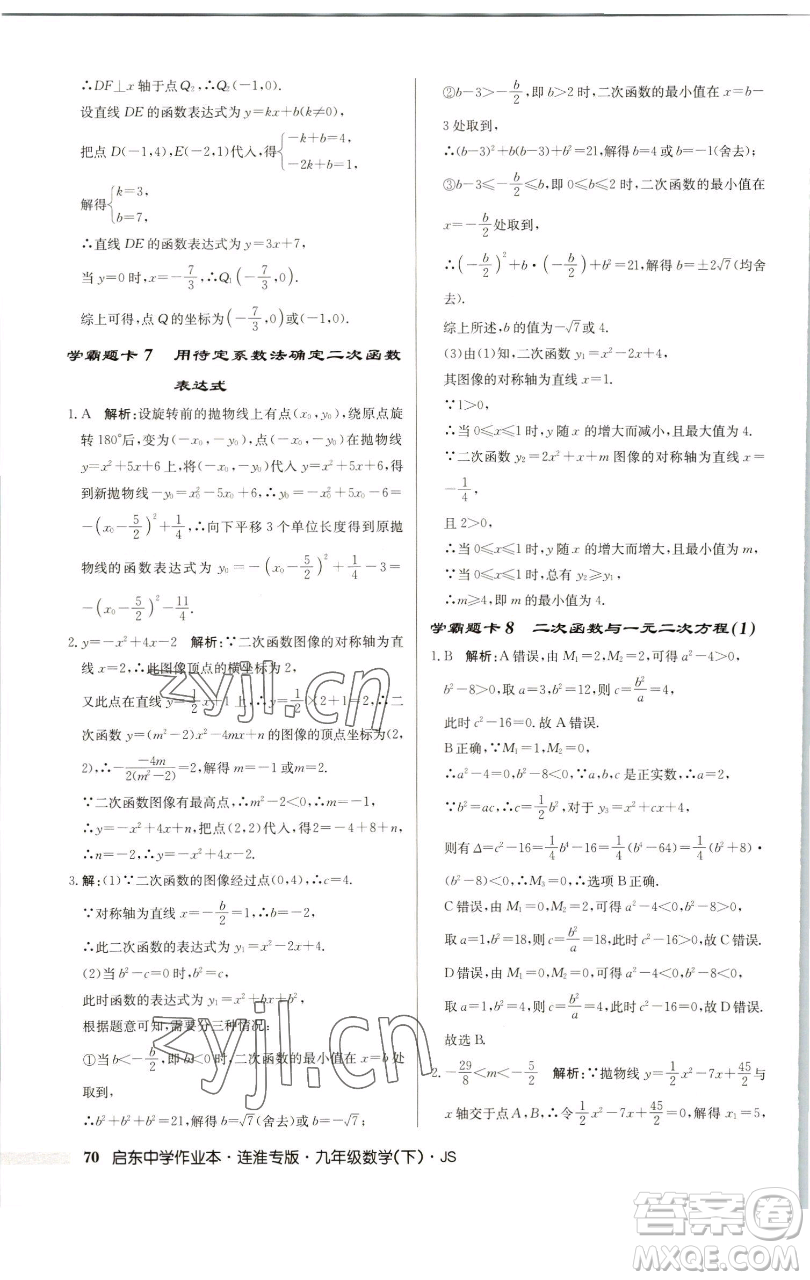 ∴DF⊥x 轴于点 Q₂,∴Q₂(-1,0).
设直线 DE 的函数表达式为 y=kx+b(k≠0),
把点 D(-1,4),E(-2,1)代入,得{-k+b=4, -2k+b=1,
解得{k=3, b=7,
∴直线 DE 的函数表达式为 y=3x+7,
当 y=0 时,x=-7/3,∴Q₁(-7/3,0).
综上可得,点 Q 的坐标为(-7/3,0)或(-1,0).
学霸题卡 7 用待定系数法确定二次函数
表达式
1. A 解析:设旋转前的抛物线上有点(x₀,y₀),绕原点旋
转 180°后,变为(-x₀,-y₀),点(-x₀,-y₀)在抛物线
y=x²+5x+6 上,将(-x₀,-y₀)代入 y=x²+5x+6,得
到新抛物线-y₀=x₀²-5x₀+6,∴y₀=-x₀²+5x₀-6=
-(x₀-5/2)²+1/4,∴向下平移 3 个单位长度得到原抛
物线的函数表达式为 y₀=-(x₀-5/2)²+1/4-3=
-(x₀-5/2)²-11/4.
2. y=-x²+4x-2 解析:∵二次函数图像的对称轴为直
线 x=2,∴此图像顶点的横坐标为 2,
又此点在直线 y=1/2x+1 上,∴y=1/2×2+1=2,∴二
次函数 y=(m²-2)x²-4mx+n 的图像的顶点坐标为(2,
2),∴-(-4m)/(2(m²-2))=2,解得 m=-1或m=2.
∵二次函数图像有最高点,∴m²-2<0,∴m=-1,
∴y=-x²+4x+n,把点(2,2)代入,得2=-4+8+n,
∴n=-2,∴y=-x²+4x-2.
3. 解:(1)∵二次函数的图像经过点(0,4),∴c=4.
∵对称轴为直线 x=-b/2=1,∴b=-2,
∴此二次函数的表达式为 y₁=x²-2x+4.
(2)当 b²-c=0 时,b²=c,
此时函数表达式为 y₁=x²+bx+b²,
根据题意可知,需要分三种情况:
①当 b<-b/2,即 b<0 时,二次函数的最小值在 x=b 处
取到,
∴b²+b²+b²=21,解得 b=√7(舍去)或 b=-√7;
②b-3>-b/2,即 b>2 时,二次函数的最小值在 x=b-
3 处取到,
∴(b-3)²+b(b-3)+b²=21,解得 b=4或 b=-1(舍去);
③b-3≤-b/2≤b,即 0≤b≤2 时,二次函数的最小值在
x=-b/2处取到,
∴(-b/2)²+b·(-b/2)+b²=21,解得 b=±2√7(均舍
去).
综上所述,b 的值为-√7或 4.
(3)由(1)知,二次函数的表达式为 y₁=x²-2x+4,
其图像的对称轴为直线 x=1.
∵1>0,
∴当 0≤x≤1 时,y 随 x 的增大而减小,且最大值为 4.
∵二次函数 y₂=2x²+x+m 图像的对称轴为直线 x=
-1/4,
且 2>0,
∴当 0≤x≤1 时,y 随 x 的增大而增大,且最小值为 m,
∵当 0≤x≤1 时,总有 y₂≥y₁,
∴m≥4,即 m 的最小值为 4.
学霸题卡 8 二次函数与一元二次方程(1)
1. B 解析:A 错误,由 M₁=2,M₂=2,可得 a²-4>0,
b²-8>0,取 a=3,b²=12,则 c=b²/a=4,
此时 c²-16=0.故 A 错误.
B 正确,∵M₁=1,M₂=0,
∴a²-4=0,b²-8<0,∵a,b,c 是正实数,∴a=2,
∵b²=ac,∴c=1/2b²,对于 y₃=x²+cx+4,
则有 Δ=c²-16=1/4b⁴-16=1/4(b⁴-64)=1/4(b²+8)·
(b²-8)<0,∴M₃=0,∴选项 B 正确.
C 错误,由 M₁=0,M₂=2,可得 a²-4<0,b²-8>0,
取 a=1,b²=18,则 c=b²/a=18,此时 c²-16>0,故 C 错误.
D 错误,由 M₁=0,M₂=0,可得 a²-4<0,b²-8<0,
取 a=1,b²=4,则 c=b²/a=4,此时 c²-16=0.故 D 错误.
故选 B.
2. -29/8<m<-5/2 解析:∵抛物线 y=1/2x²-7x+45/2与
x 轴交于点 A,B,∴令1/2x²-7x+45/2=0,解得 x₁=5,
70 启东中学作业本·连淮专版·九年级数学(下)·JS
zyjl.cn
zyjl.cn
答案圈
MXQE.COM